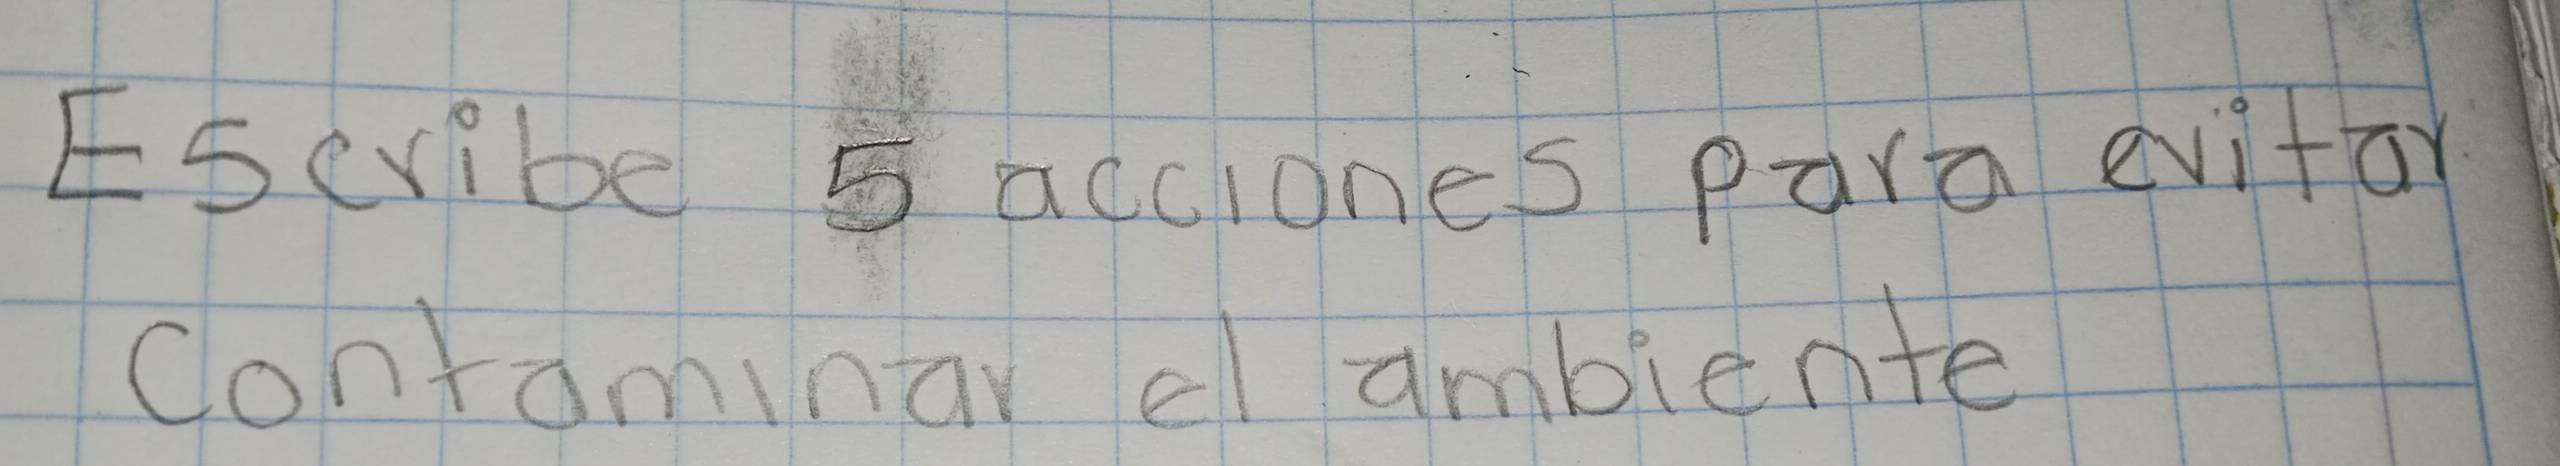 Escribe 5 acciones para evitar
contaminar el ambiente